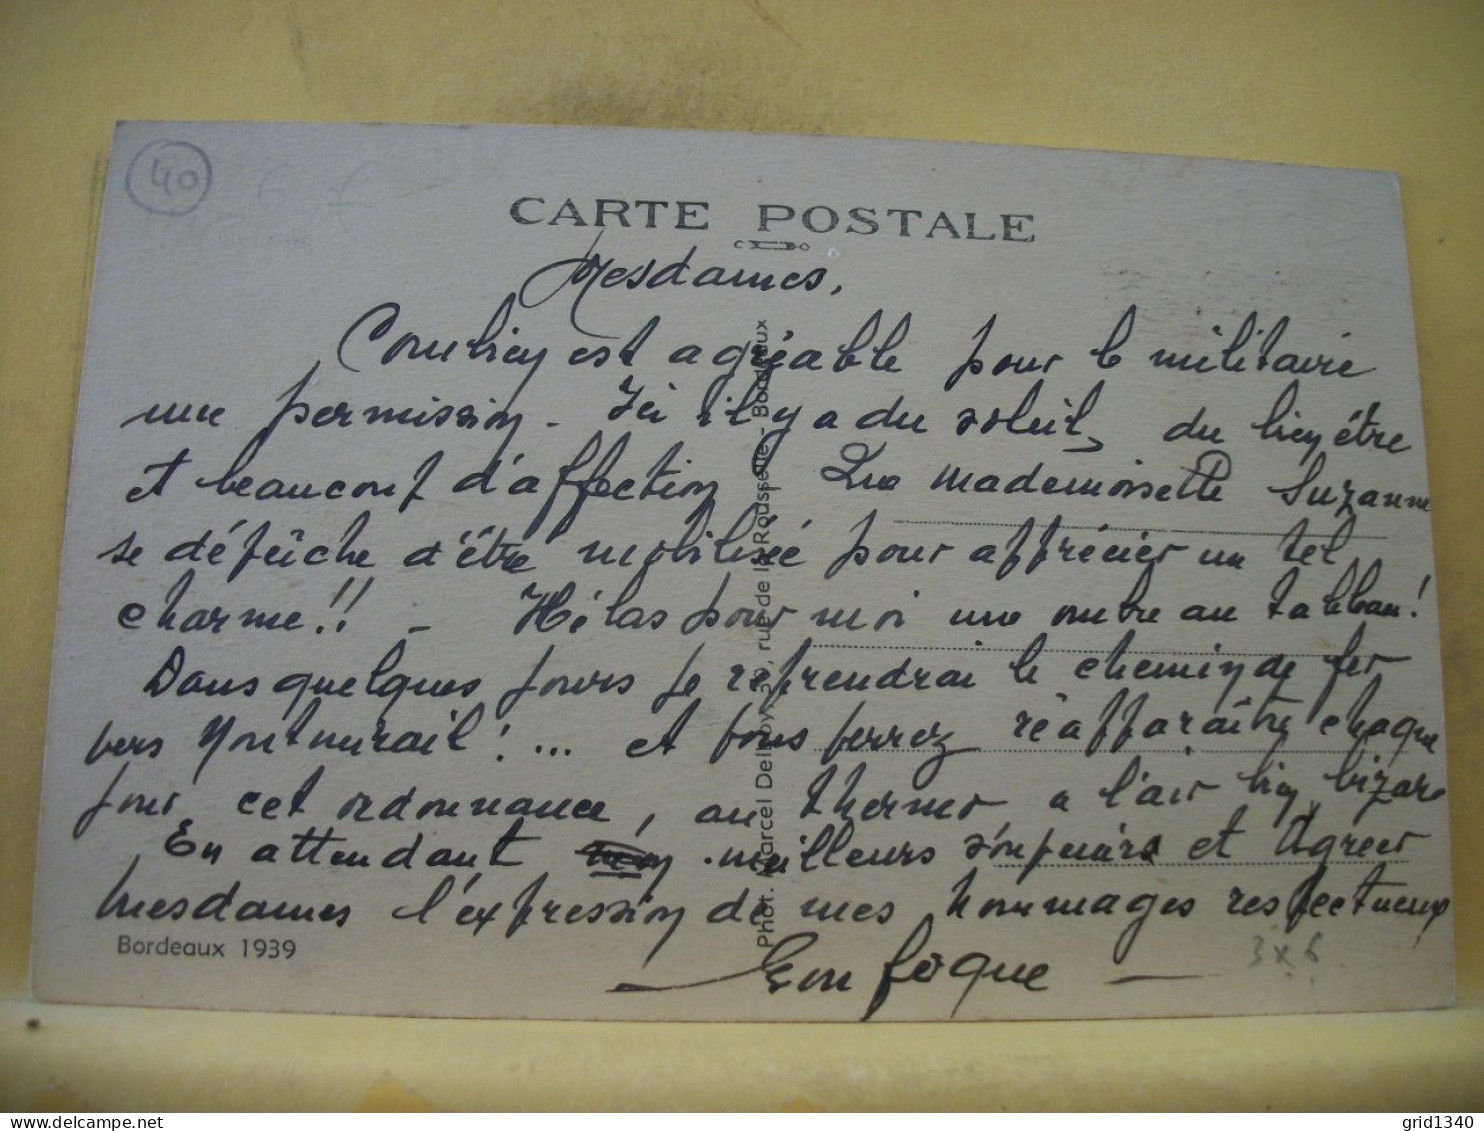 40
6 €
CARTE POSTALE
Mesdames,
Combien est agréable pour le militaire
une permission. Ici il y a du soleil, du bien être
et beaucoup d'affection. Que mademoiselle Suzanne
se dépêche d'être mobilisée pour apprécier un tel
charme!! – Hélas pour moi une ombre au tableau!
Dans quelques jours je reprendrai le chemin de fer
vers Montmirail! ... et vous verrez réapparaître chaque
jour cet ordonnance, au thermos a l'air bien bizare
En attendant meilleurs et Agréer
Mesdames l'expression de mes hommages respectueux
Bordeaux 1939
3 x 6
Phot. Marcel Delboy, rue de la Rousselle - Bordeaux
delcampe.net
grid1340